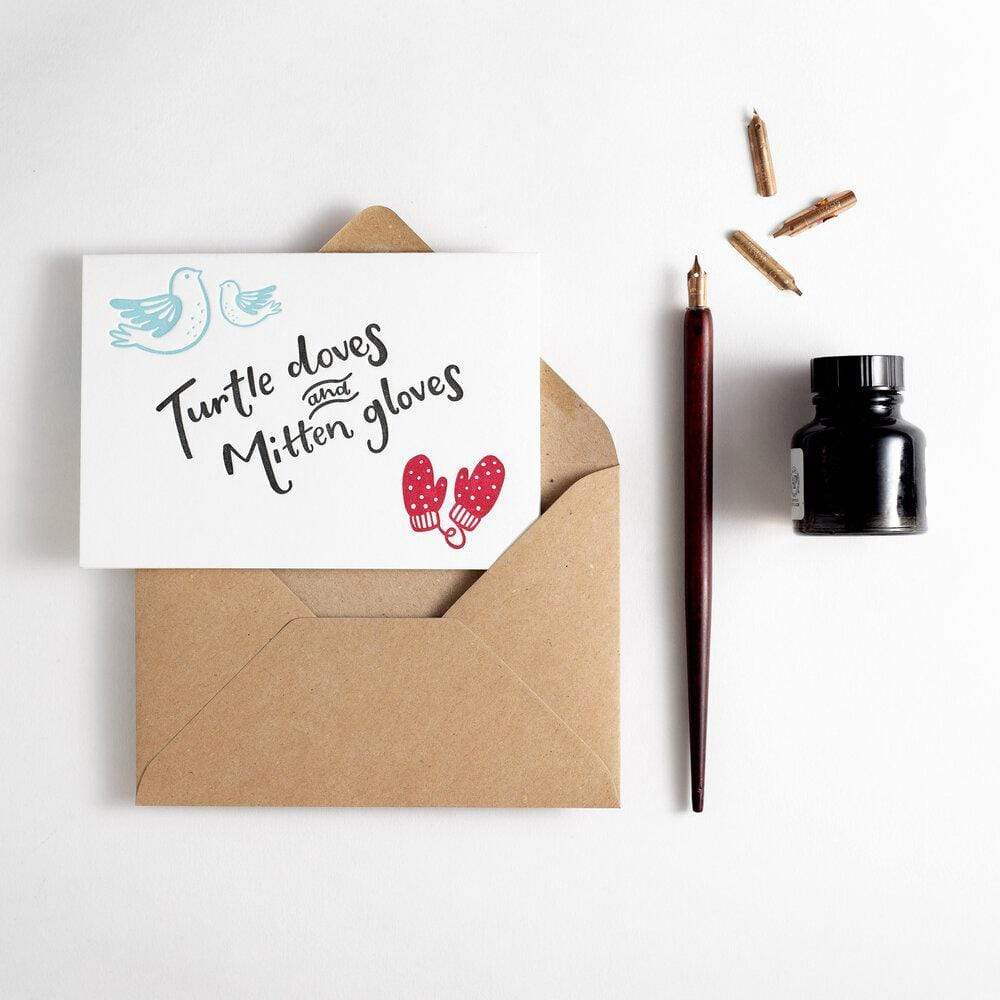 Turtle doves
and
Mitten gloves